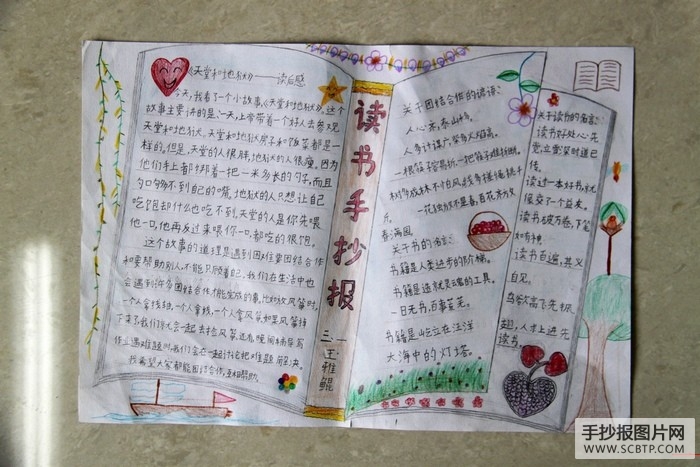 《天堂和地狱》——读后感
今天,我看了一个小故事《天堂和地狱》,这个
故事主要讲的是:一天,上帝带着一个好人去参观
天堂和地狱,天堂和地狱房子和饭菜都是一
样的,但是,天堂的人很胖,地狱的人很瘦。因为
他们手上都绑着一把一米多长的勺子,而且
勺口够不到自己的嘴。地狱的人只想让自己
吃饱却什么也吃不到,天堂的人是你先喂
他一口,他再反过来喂你一口,都吃的很饱。
这个故事的道理是遇到困难要团结合作
和要帮助别人,不能只顾着自己,我们在生活中也
会遇到许多团结合作才能完成的事,比如放风筝时,
一个人拿线轴,一个人拿线,一个人拿风筝,如果风筝掉
下来了我们会一起去捡风筝,还有,晚间辅导写
作业遇难题时,我们会在一起讨论把难题而解决。
我希望大家都能团结合作,互相帮助。
读书手抄报
三、一
王雅鲲
关于团结合作的谚语:
人心齐,泰山移。
人多计谋广,柴多火焰高。
一根筷子容易折,一把筷子难折断。
一花独放不是春,百花齐放
春满园
关于书的名言:
书籍是人类进步的阶梯。
书籍是造就灵魂的工具。
一日无书,百事荒芜。
书籍是屹立在汪洋
大海中的灯塔。
关于读书的名言:
读书好处心先
觉立雪深时道已
传。
读过一本好书,就
像交了一个益友。
读书破万卷,下笔
如有神
读书百遍,其义
自见。
鸟欲高飞先振
翅,人求上进先
读书。
手抄报图片网
WWW.SCBTP.COM